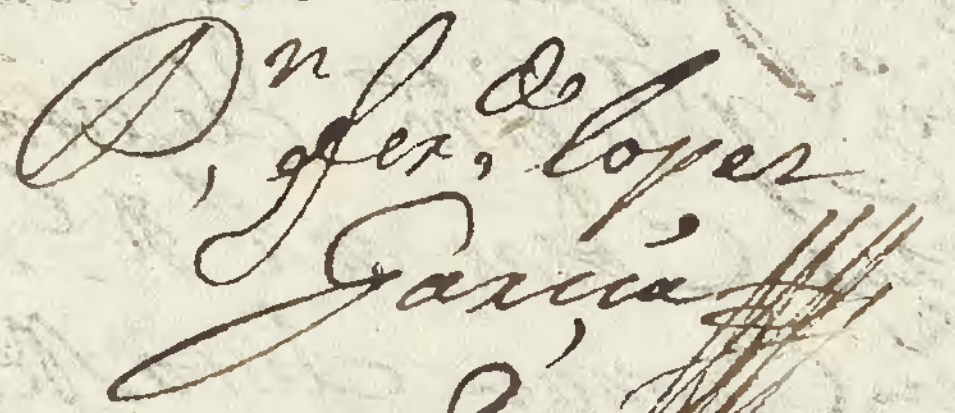 Dn, Fer.do lopez
Garcia